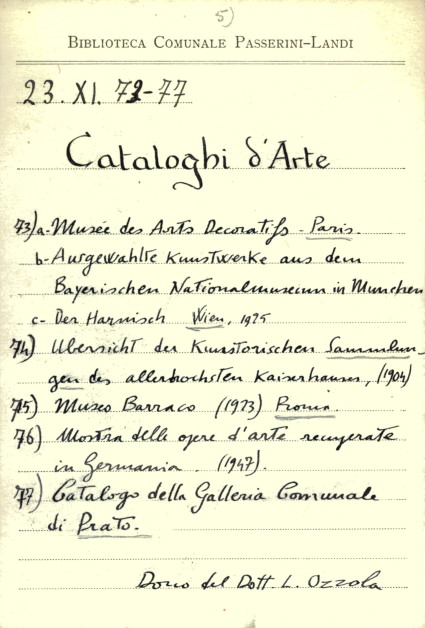 5)
BIBLIOTECA COMUNALE PASSERINI-LANDI
23. XI. 73-77
Cataloghi d'Arte
73) a- Musée des Arts Decoratifs - Paris.
b- Ausgewählte Kunstwerke aus dem
Bayerischen Nationalmuseum in Munchen
c- Der Harnisch Wien, 1925
74) Ubersicht der Kunstorischen Sammlun-
gen des allerhochsten Kaiserhauses, (1904)
75) Museo Barraco (1923) Roma.
76) Mostra delle opere d'arte recuperate
in Germania. (1947).
77) Catalogo della Galleria Comunale
di Prato.
Dono del Dott. L. Ozzola